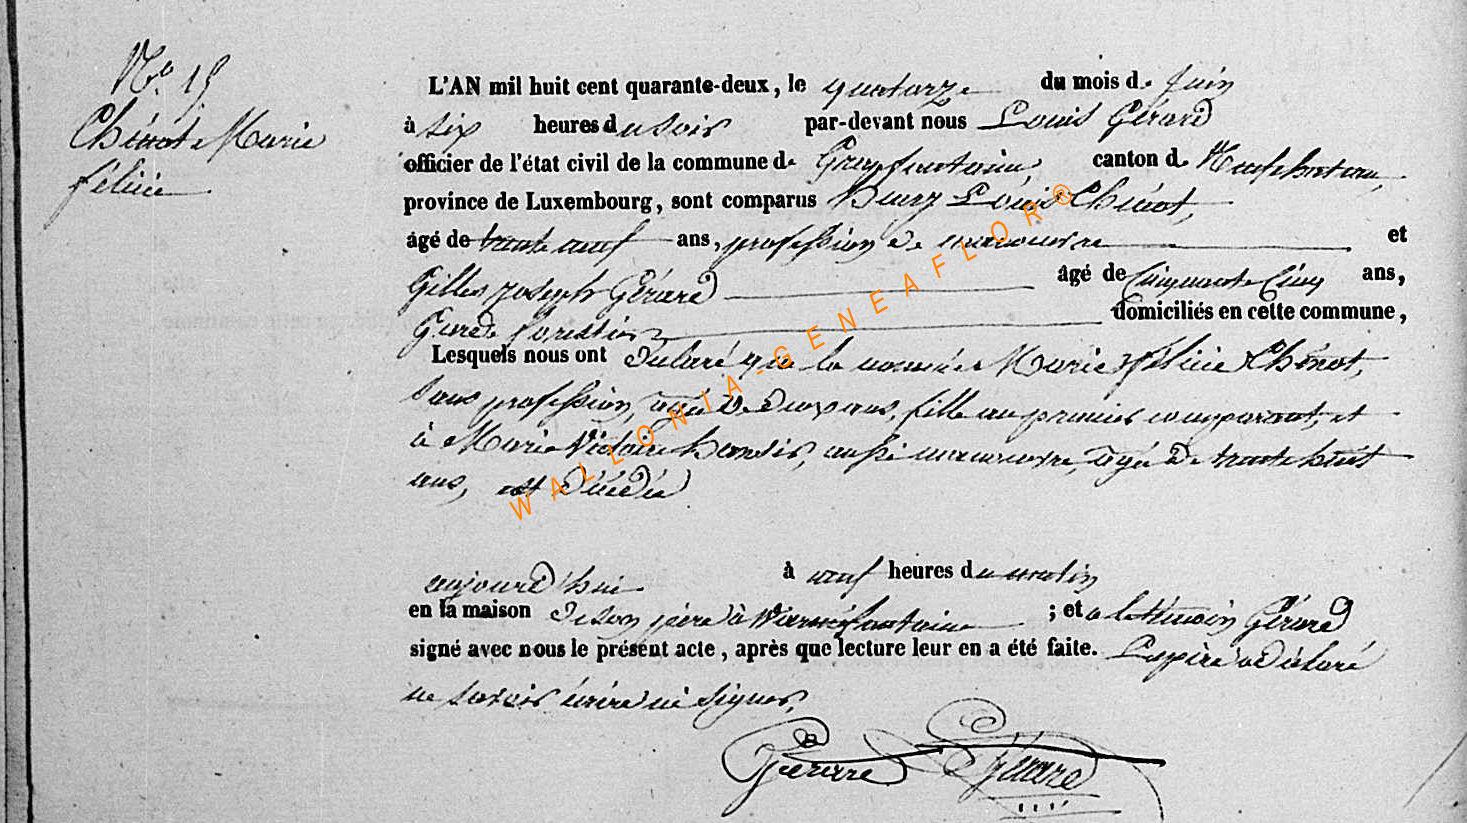 N.o 15
Chénot Marie
félicie
L'AN mil huit cent quarante-deux, le quatorze du mois de Juin
à six heures du soir par-devant nous Louis Gérard
officier de l'état civil de la commune de Grapfontaine, canton de Neufchateau,
province de Luxembourg, sont comparus Henry Louis Chénot,
âgé de trente neuf ans, profession de manouvre et
Gilles Joseph Gérard âgé de Cinquante Cinq ans,
Garde forestier domiciliés en cette commune,
Lesquels nous ont déclaré que la nommée Marie félicie Chénot,
sans profession, agée de deux ans, fille au premier comparant, et
à Marie Victoire, aussi manouvre, agée de trente huit
ans, est décédée
aujourd'hui à neuf heures du matin
en la maison de son père à Warmifontaine ; et a le témoin Gérard
signé avec nous le présent acte, après que lecture leur en a été faite. Le père a déclaré
ne savoir écrire ni signer.
Gérard Gérard
WALLONIA-GENEAFLOR®